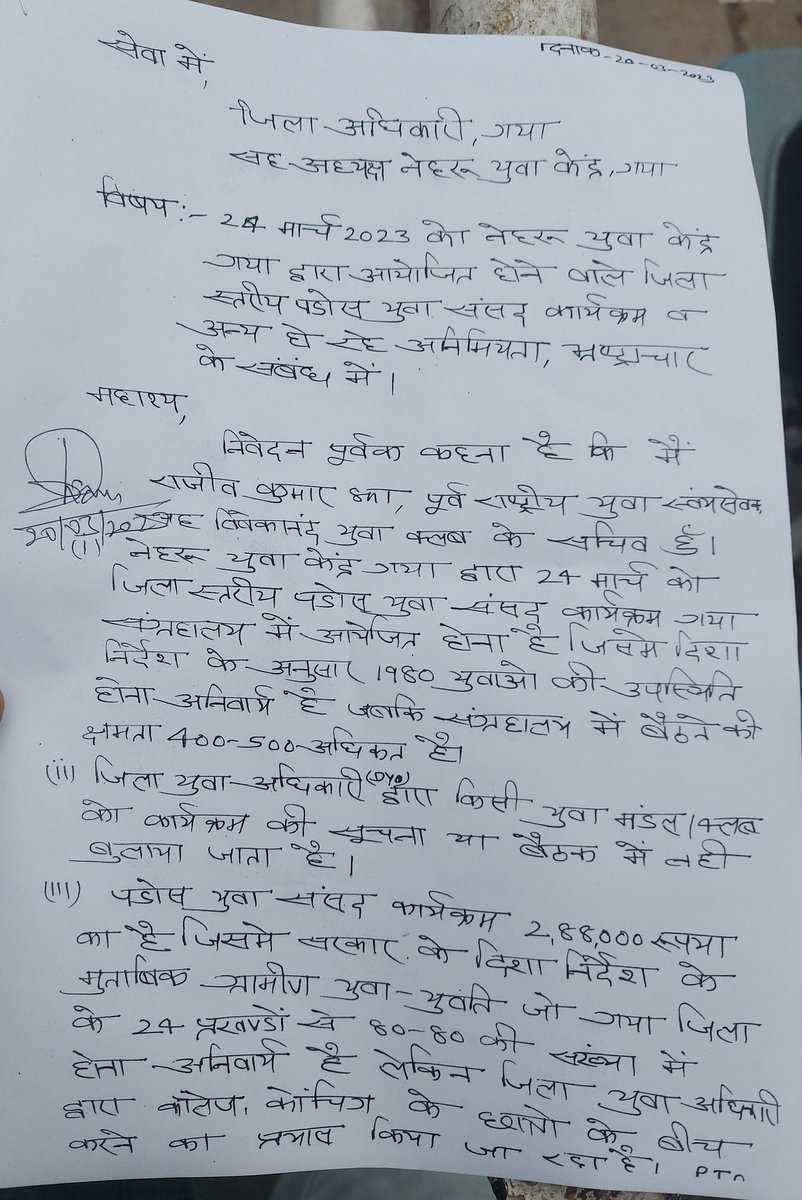 दिनाक-20-03-2023
सेवा में,
जिला अधिकारी, गया
सह अध्यक्ष नेहरू युवा केंद्र, गया
विषय:- 24 मार्च 2023 को नेहरू युवा केंद्र
गया द्वारा आयोजित होने वाले जिला
स्तरीय पडोस युवा संसद कार्यक्रम व
अन्य हो रहे अनिमियता, भ्रष्ट्राचार
के संबंध में।
महाशय,
निवेदन पूर्वक कहना है कि मैं
राजीव कुमार झा, पूर्व राष्ट्रीय युवा स्वंयसेवक
20/03/2023
सह विवेकानंद युवा क्लब के सचिव हूँ।
(i) नेहरू युवा केंद्र गया द्वारा 24 मार्च को
जिला स्तरीय पडोस युवा संसद कार्यक्रम गया
संग्रहालय में आयोजित होना है जिसमे दिशा
निर्देश के अनुसार 1980 युवाओ की उपस्थिति
होना अनिवार्य है जबकि संग्रहालय में बैठने की
क्षमता 400-500 अधिकत है।
(ii) जिला युवा अधिकारी (DYO) द्वारा किसी युवा मंडल/क्लब
को कार्यक्रम की सूचना या बैठक में नही
बुलाया जाता है।
(iii) पडोस युवा संसद कार्यक्रम 2,88,000 रूपया
का है जिसमे सरकार के दिशा निर्देश के
मुताबिक ग्रामीण युवा-युवति जो गया जिला
के 24 प्रखण्डों से 80-80 की संख्या में
होना अनिवार्य है लेकिन जिला युवा अधिकारी
द्वारा कॉलेज, कोंचिग के छात्रो के बीच
करने का प्रयास किया जा रहा है। PTO